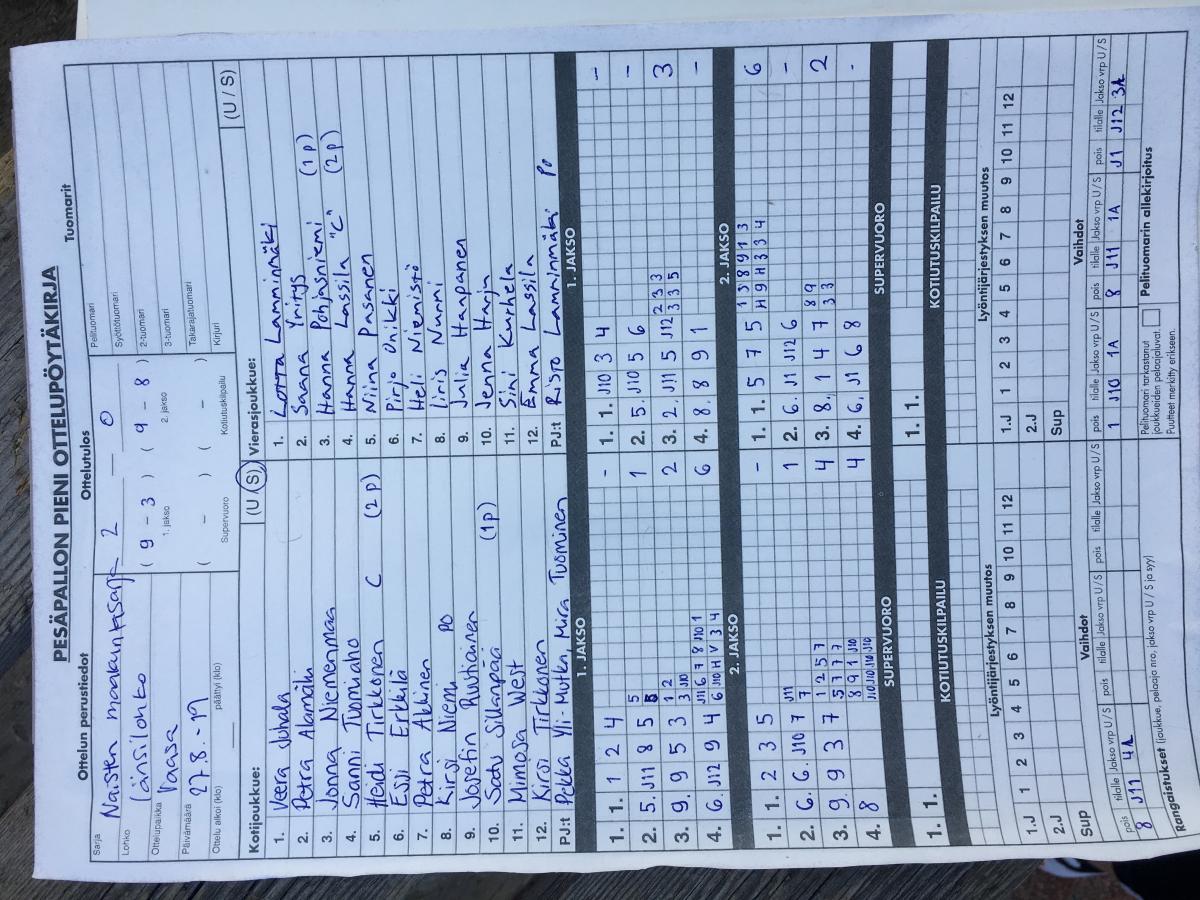 PESÄPALLON PIENI OTTELUPÖYTÄKIRJA
Ottelun perustiedot
Sarja
Naisten maakuntasarja
Lohko
Länsilohko
Ottelupaikka
Vaasa
Päivämäärä
27.8.-19
Ottelu alkoi (klo)
päättyi (klo)
Ottelutulos
2 — 0
( 9 - 3 ) ( 9 - 8 )
1. jakso 2. jakso
( - ) ( - )
Supervuoro Kotiutuskilpailu
Tuomarit
Pelituomari
Syöttötuomari
2-tuomari
3-tuomari
Takarajatuomari
Kirjuri
Kotijoukkue: (U / S)
1. Veera Juhala
2. Petra Alamäki
3. Jonna Niemenmaa
4. Sanni Tuomiaho
5. Heidi Tirkkonen C (2p)
6. Essi Erkkilä
7. Petra Akkinen
8. Kirsi Niemi PO
9. Josefin Ruuhianen
10. Satu Silkanpää (1p)
11. Mimosa West
12. Kirsi Tirkkonen
PJ:t Pekka Yli-Mutka, Mira Tuominen
Vierasjoukkue: (U / S)
1. Lotta Lamminmäki
2. Saana Yritys
3. Hanna Pohjasniemi (1p)
4. Hanna Lassila "C" (2p)
5. Niina Pasanen
6. Pirjo Onikki
7. Heli Niemistö
8. Iiris Nummi
9. Julia Haapanen
10. Jenna Harja
11. Sini Kurhela
12. Emma Lassila
PJ:t Risto Lamminmäki PO
1. JAKSO
1. 1. 1 2 4 -
2. 5. J11 8 5 5 1
3. 9. 9 5 3 1 2 2
3 J10
4. 6. J12 9 4 J11 6 7 8 J10 1 6
6 J10 H V 3 4
2. JAKSO
1. 1. 2 3 5 -
2. 6. 6. J10 7 J11 1
7
3. 9. 9 3 7 1 2 5 7 4
5 7 7 7
4. 8 8 9 1 J10 4
J10 J10 J10 J10
SUPERVUORO
1. 1.
KOTIUTUSKILPAILU
1. JAKSO
1. 1. J10 3 4 -
2. 5. J10 5 6 -
3. 2. J11 5 J12 2 3 3 3
3 3 5
4. 8. 8 9 1 -
2. JAKSO
1. 1. 5 7 5 1 3 8 9 1 3 6
H 9 H 3 3 4
2. 6. J1 J12 6 -
3. 8. 1 4 7 8 9 2
3 3
4. 6. J1 6 8 -
SUPERVUORO
1. 1.
KOTIUTUSKILPAILU
Lyöntijärjestyksen muutos
1.J 1 2 3 4 5 6 7 8 9 10 11 12
2.J
Sup
Vaihdot
pois tilalle Jakso vrp U / S pois tilalle Jakso vrp U / S pois tilalle Jakso vrp U / S
8 J11 4A
Lyöntijärjestyksen muutos
1.J 1 2 3 4 5 6 7 8 9 10 11 12
2.J
Sup
Vaihdot
pois tilalle Jakso vrp U / S pois tilalle Jakso vrp U / S pois tilalle Jakso vrp U / S
1 J10 1A 8 J11 1A J1 J12 3A
Rangaistukset (joukkue, pelaaja nro, jakso vrp U / S ja syy)
Pelituomari tarkastanut
joukkueiden pelaajaluvat.
Puutteet merkitty erikseen.
Pelituomarin allekirjoitus